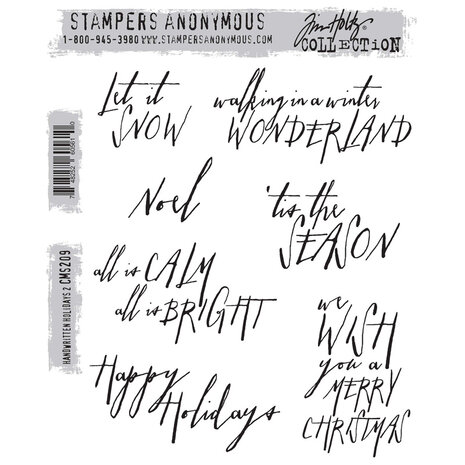 STAMPERS ANONYMOUS
1-800-945-3980 WWW.STAMPERSANONYMOUS.COM
Tim Holtz
COLLECTION
Let it
SNOW
walking in a winter
WONDERLAND
Noel
'tis the
SEASON
all is CALM
all is BRIGHT
we
WISH
you a
MERRY
CHRISTMAS
Happy
Holidays
HANDWRITTEN HOLIDAYS 2 CMS209